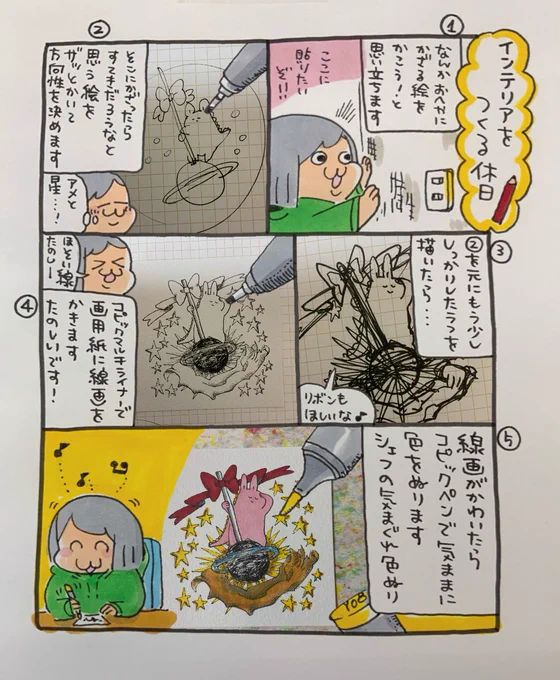 インテリアを
つくる休日
①
なんかおへやに
かざる絵を
かこう!と
思い立ちます
ここに
貼りたい
ぞ!!
②
そこにかざったら
すてきだろうなと
思う絵を
ザッとかいて
方向性を決めます
アメと
星…!
③
②を元にもう少し
しっかりしたラフを
描いたら…
リボンも
ほしいな♪
④
ほそい線
たのしー
コピックマルチライナーで
画用紙に線画を
かきます
たのしいです!
⑤
線画がかわいたら
コピックペンで気ままに
色をぬります
シェフの気まぐれ色ぬり
Y08